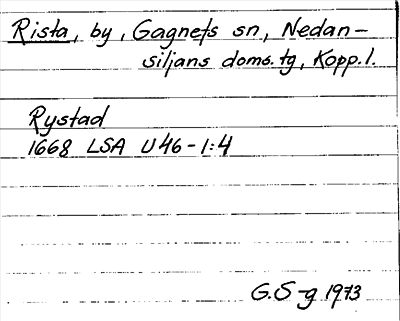 Rista, by, Gagnefs sn, Nedan-
siljans doms.tg, Kopp.l.
Rystad
1668 LSA U46-1:4
G.S-g 1973